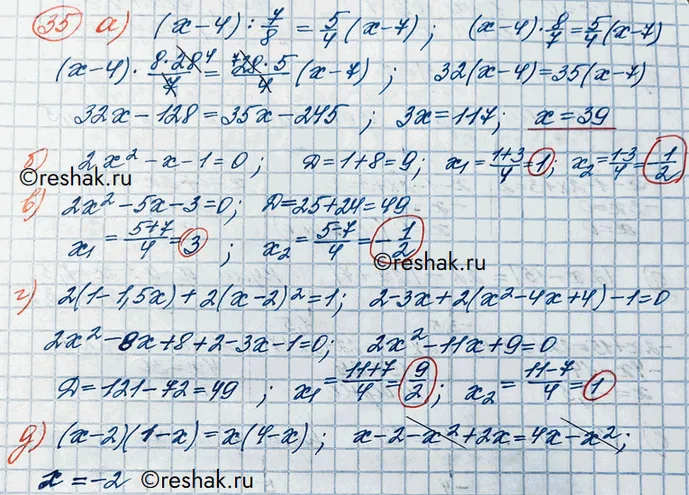 35 а) (x-4) : 7/8 = 5/4 (x-7) ; (x-4) · 8/7 = 5/4 (x-7)
(x-4) · 8·28⁴/7 = ⁷28·5/4 (x-7) ; 32(x-4)=35(x-7)
32x-128=35x-245 ; 3x=117; x=39
б) 2x²-x-1=0 ; D=1+8=9; x₁=(1+3)/4=1; x₂=(1-3)/4=-1/2
©reshak.ru
в) 2x²-5x-3=0; D=25+24=49
x₁=(5+7)/4=3 ; x₂=(5-7)/4=-1/2
©reshak.ru
г) 2(1-1,5x)+2(x-2)²=1; 2-3x+2(x²-4x+4)-1=0
2x²-8x+8+2-3x-1=0; 2x²-11x+9=0
D=121-72=49 ; x₁=(11+7)/4=9/2; x₂=(11-7)/4=1
д) (x-2)(1-x)=x(4-x); x-2-x²+2x=4x-x²;
x=-2 ©reshak.ru